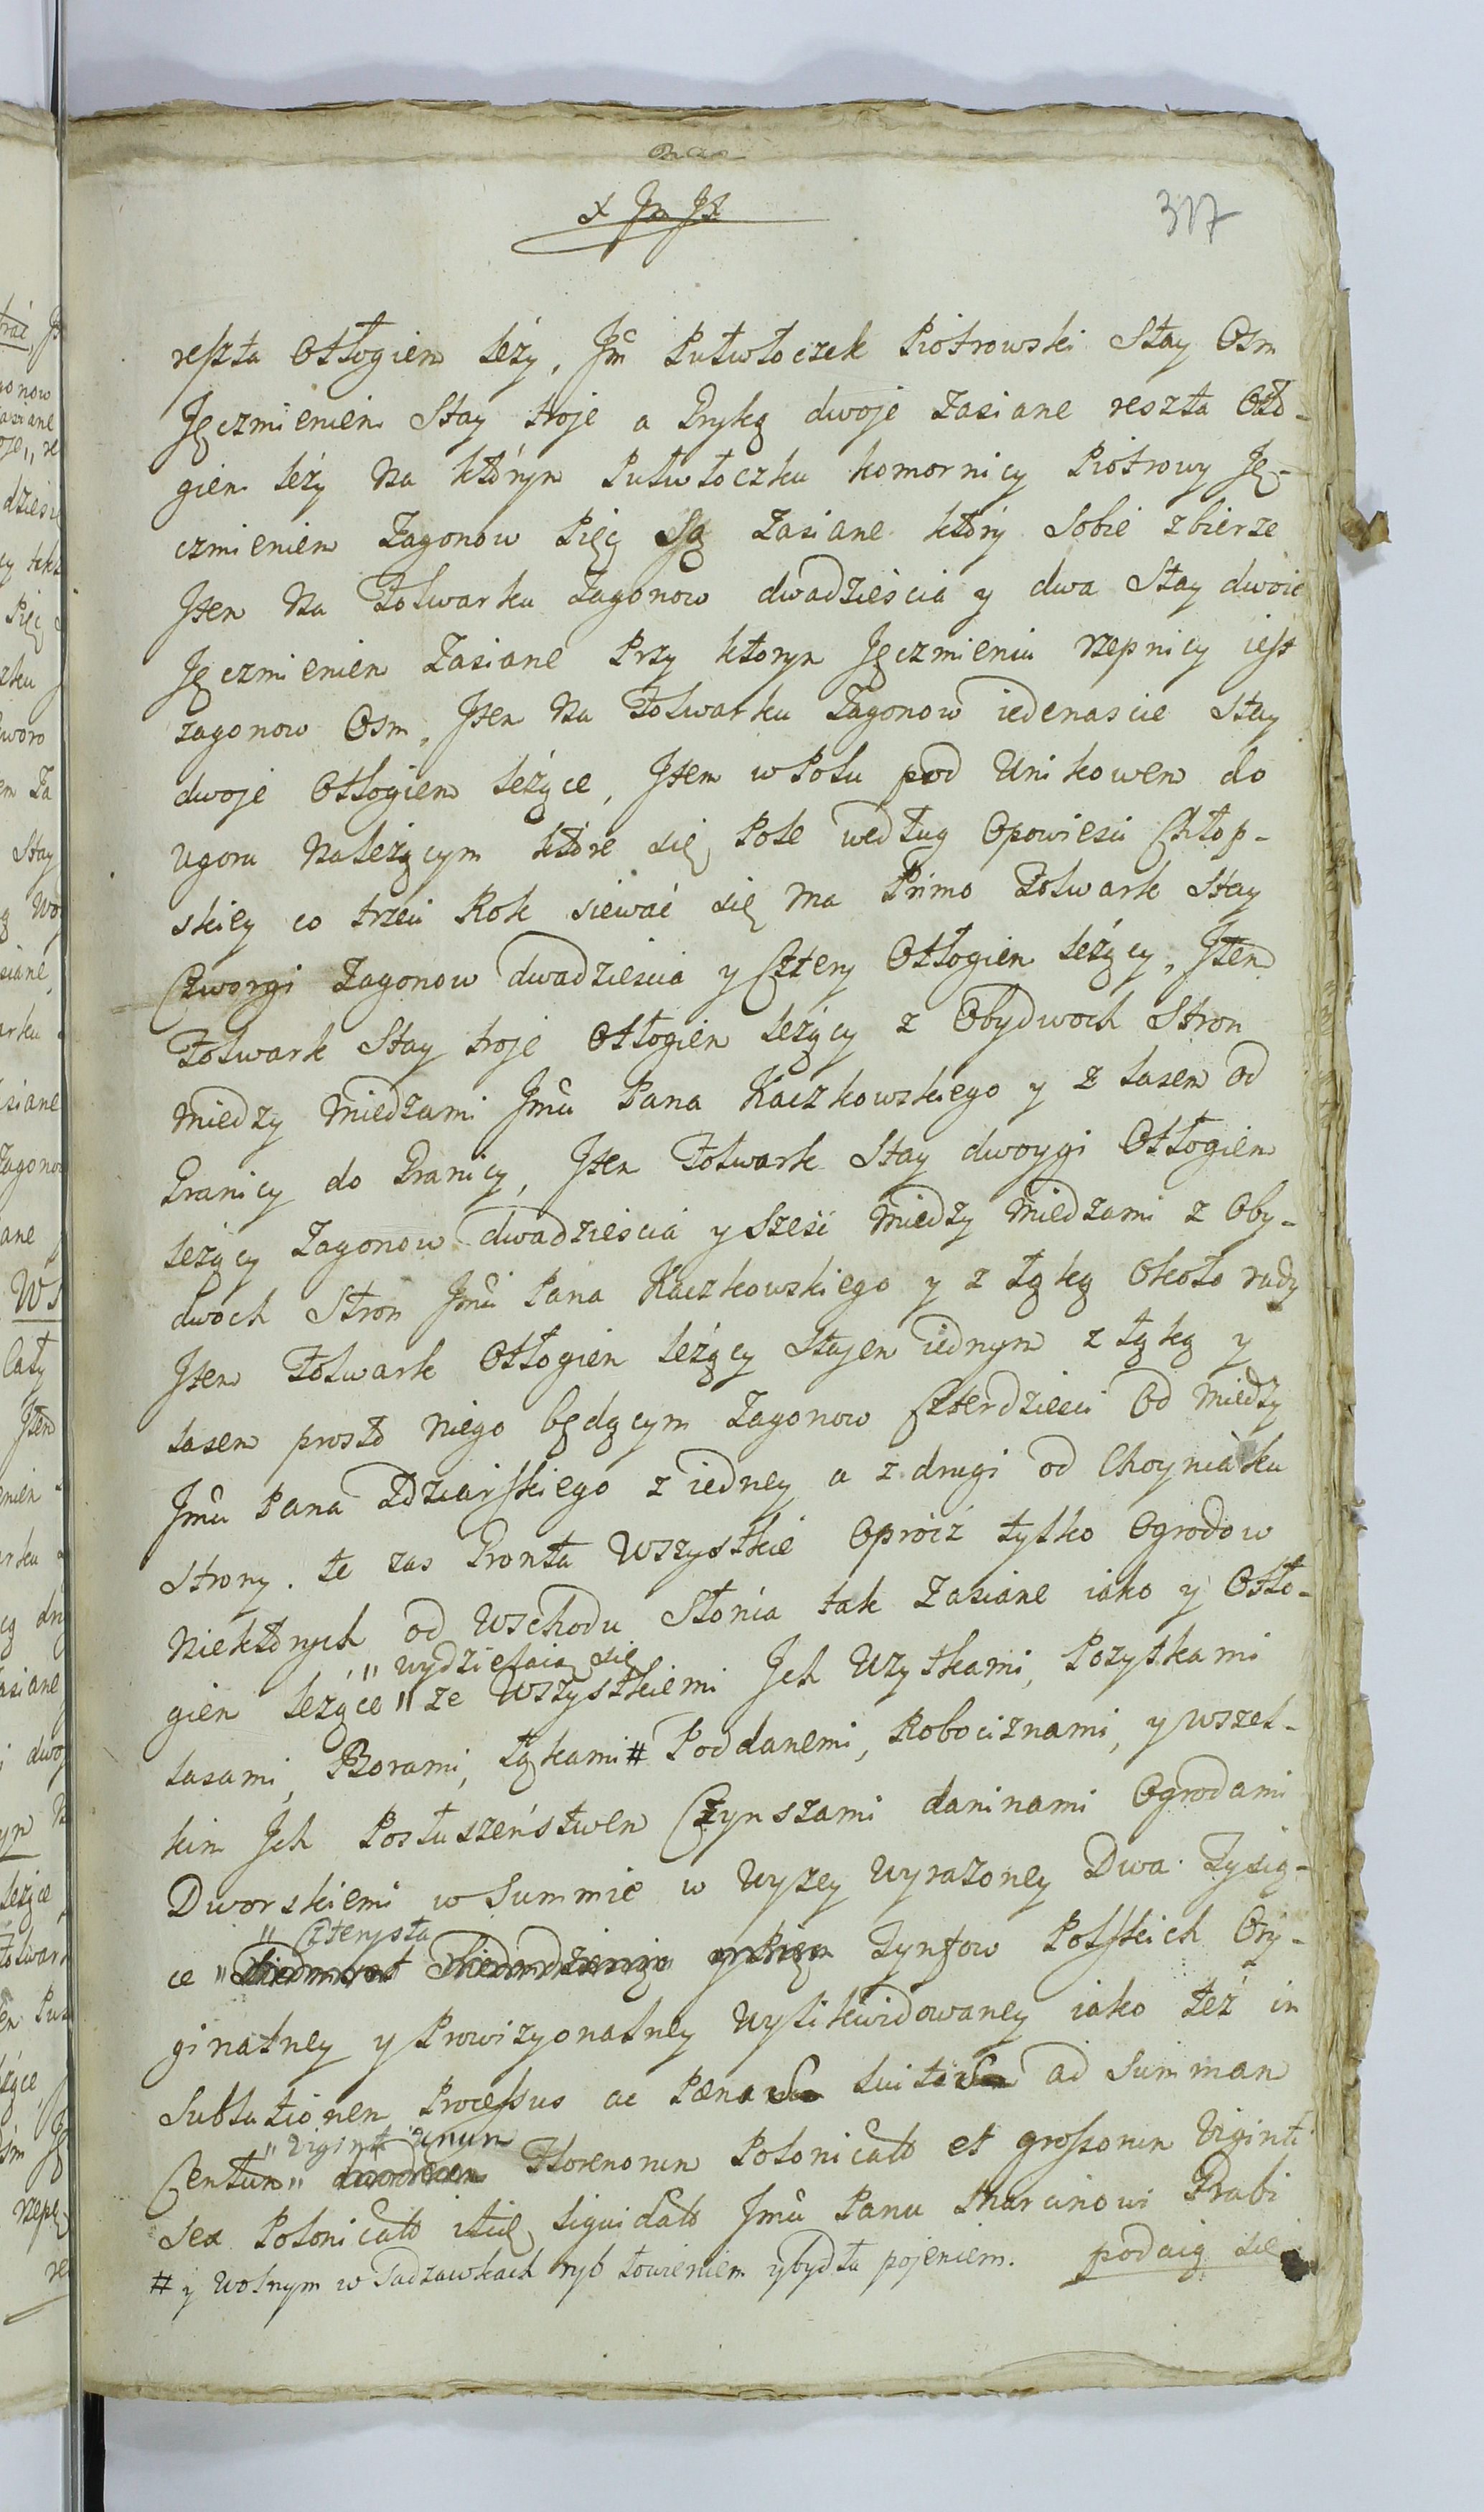 317
reszta Odłogiem leży, Jtm Pułwłoczek Piotrowski Stay Osm
Jęczmieniem Stay troje a Gryką dwoje zasiane reszta Odło-
giem leży Na którym Pułwłoczku komornicy Piotrowy Ję-
czmieniem Zagonow Pięć są Zasiane który Sobie zbierze
Jtem Na Folwarku Zagonow dwadzieścia y dwa Stay dwoie
Jęczmieniem Zasiane Przy ktorym Jęczmieniu rzepnicy iest
zagonow Osm, Jtem Na Folwarku Zagonow iedenascie Stay
dwoje Odłogiem leżące, Jtem w Polu pod Unikowem do
Ugoru Należącym które się Pole według Opowieści Chłop-
skiey co trzeci Rok siewać się ma Primo Folwark Stay
Czworgi Zagonow dwadzieścia y Cztery Odłogiem leżący, Jtem
Folwark Stay troje Odłogiem leżący z Obydwoch Stron
Miedzy Miedzami Jmci Pana Kaczkowskiego y z lasem od
Granicy do Granicy, Jtem Folwark Stay dwoygi Odłogiem
leżący Zagonow dwadzieścia y Sześć Miedzy Miedzami z Oby-
dwóch Stron Jmci Pana Kaczkowskiego y z łąką Około rudy
Jtem Folwark Odłogiem leżący Stajem iednym z łąką y
lasem prosto Niego będącym Zagonow Czterdzieści Od Miedzy
Jmci Pana Zdziarskiego z iedney a z drugi od Choyniaku
Strony. te zas Gronta Wszystkie Oprócz tylko Ogrodow
Niektórych od Wschodu Słońca tak Zasiane iako y Odło-
" wydzielaią się
giem leżące " ze Wszystkiemi Jch Uzytkami, Pozytkami
lasami, Borami, łąkami # Poddanemi, Robociznami, y wszel-
kim Jch Posłuszeństwem Czynszami daninami Ogrodami
Dworskiemi w Summie w Wyzey Wyrazoney Dwa Tysią-
" Czterysta
ce " Tynfow Polskich Ory-
ginalney y Prowizyonalney Wylikwidowaney iako też in
Sublationem Processus ac Pæna luita ad Summam
" Viginti Unum
Centum " Florenorum Polonicalo et grossorum Viginti
Sex Polonicalo liquidalo Jmci Panu Marcinowi Grabi
podaią się
# y Wolnym w Sadzawkach ryb łowieniem y bydła pojeniem.